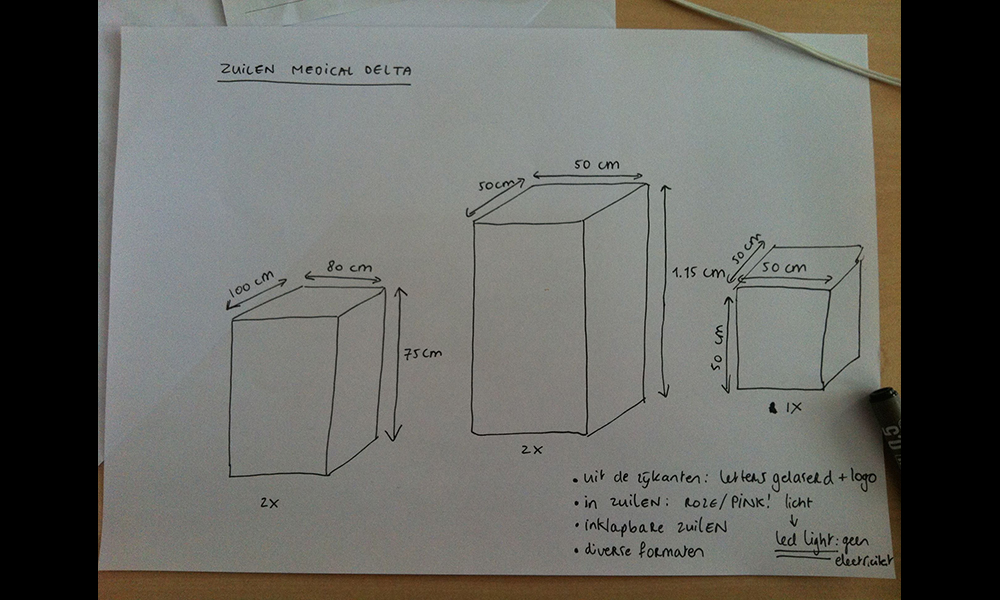 ZUILEN MEDICAL DELTA
100 cm
80 cm
75 cm
2X
50 cm
50 cm
1.15 cm
2X
50 cm
50 cm
50 cm
1X
• uit de zijkanten: letters gelaserd + logo
• in ZUILEN: ROZE/PINK! licht
• inklapbare ZUILEN
• diverse formaten
led light: geen
electriciteit
5.0